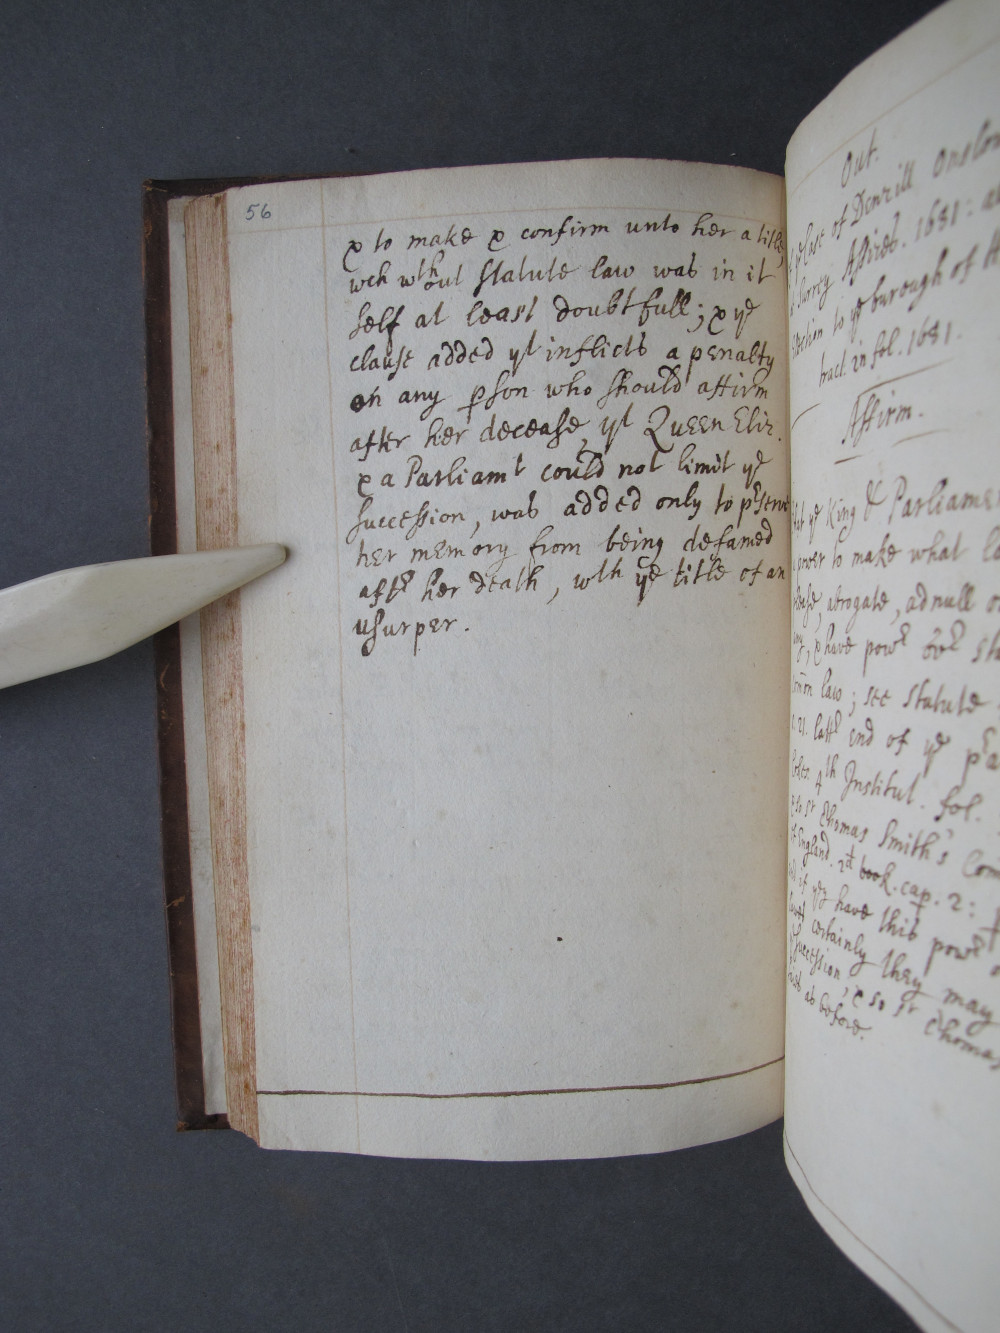 56
& to make & confirm unto her a title,
wch wthout statute law was in it
self at least doubtfull; & ye
clause added yt inflicts a penalty
on any pson who should affirm
after her decease, yt Queen Eliz.
& a Parliamt could not limit ye
succession, was added only to pserve
her memory from being defamed
aftr her death, wth ye title of an
usurper.
Out.
ye Case of Denzill Onslow
Surrey Assizes. 1681:
election to ye burough of
tract. in fol. 1681.
Affirm.
ye King & Parliament
power to make what
abrogate, adnull or
& have powr ovr
law; see statute
21. lattr end of ye
4th Institut. fol.
Sr Thomas Smith's
of England. 2d book. cap. 2:
if yy have this powr
certainly they may
succession, & so Sr Thomas
as before.